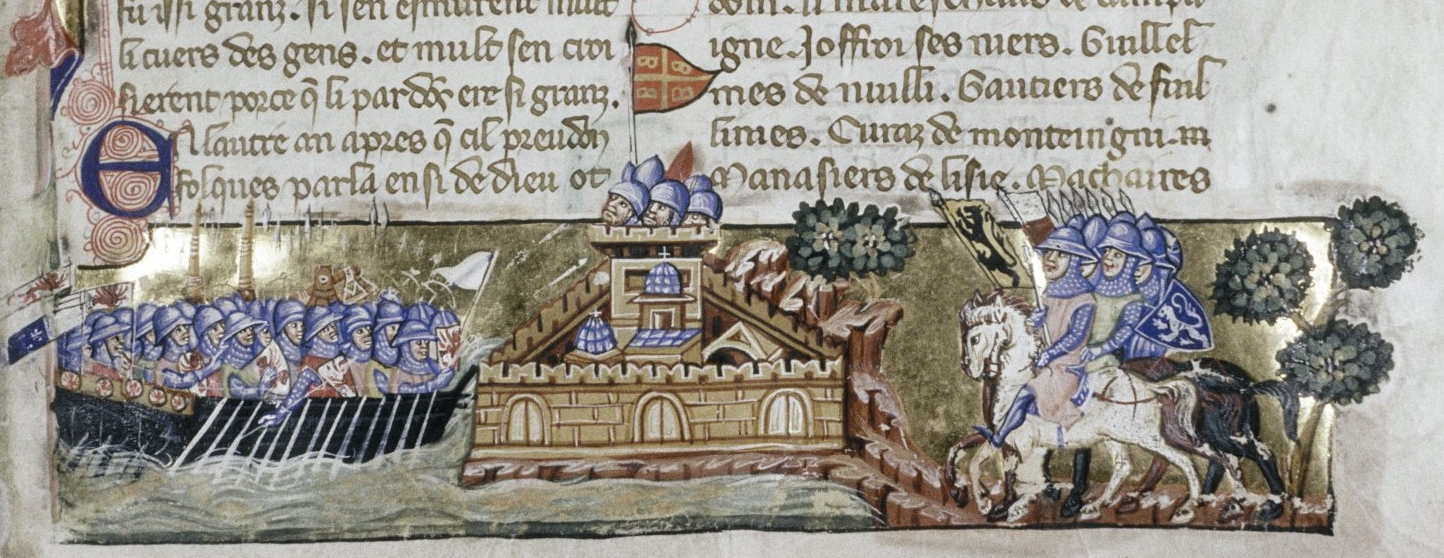 fu issi granz. si sen esmurent mult
li cuers des gens. et mult sen croi
sierent porce q̃ li pardõs ere si granz.
En lautre an apres q̃ cil preudõ
folques parla ensi de dieu ot
dom. li mareschaus de campa
igne. Joffroi ses niers. Guillel
mes de nuilli. Gautiers de fuil
lines. Curaz de monteingni. m
Manasiers de lisle. Machaires